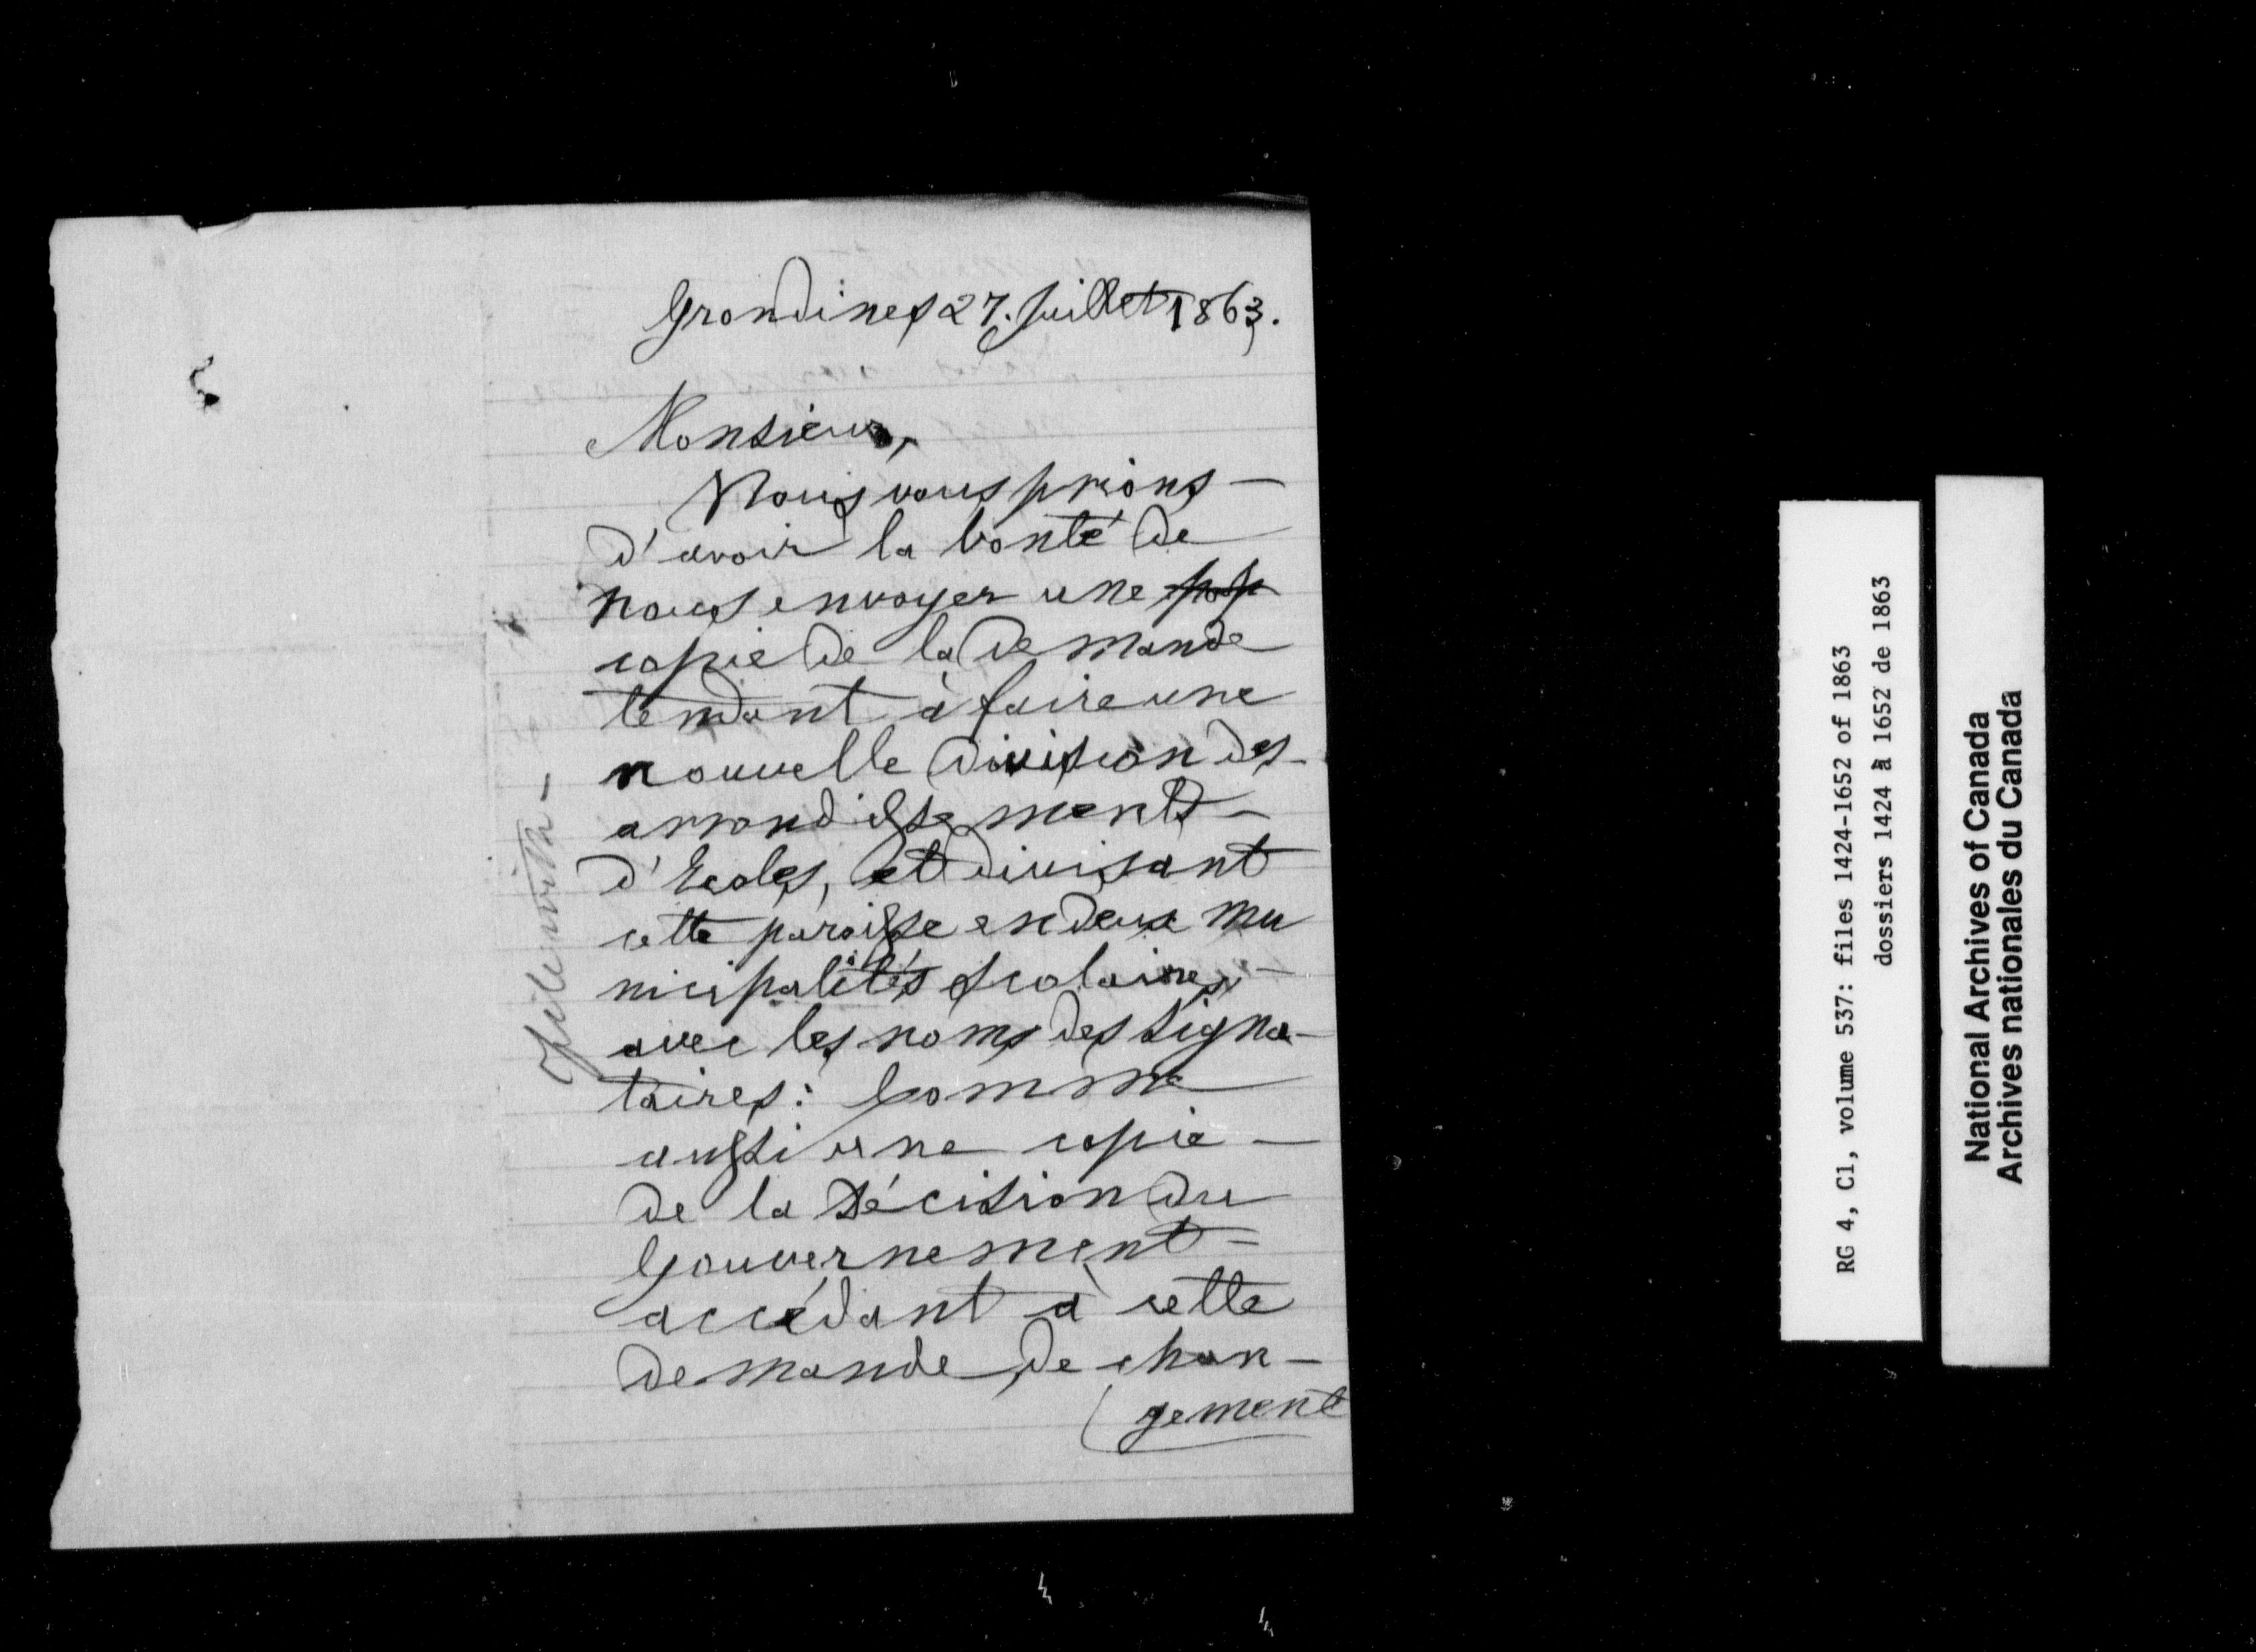 Grondines 27. Juillet 1863.
Monsieur,
Nous vous prions —
d'avoir la bonté de
nous envoyer une
copie de la demande
tendant à faire une
nouvelle division des -
arrondissements -
d'Ecoles, et divisant
cette paroisse en deux mu
nicipalités scolaires, -
avec les noms des signa-
taires: Comme
aussi une copie —
de la décision du
Gouvernement -
accédant à cette
demande de chan-
gement
File with -
RG 4, C1, volume 537: files 1424-1652 of 1863
dossiers 1424 à 1652 de 1863
National Archives of Canada
Archives nationales du Canada